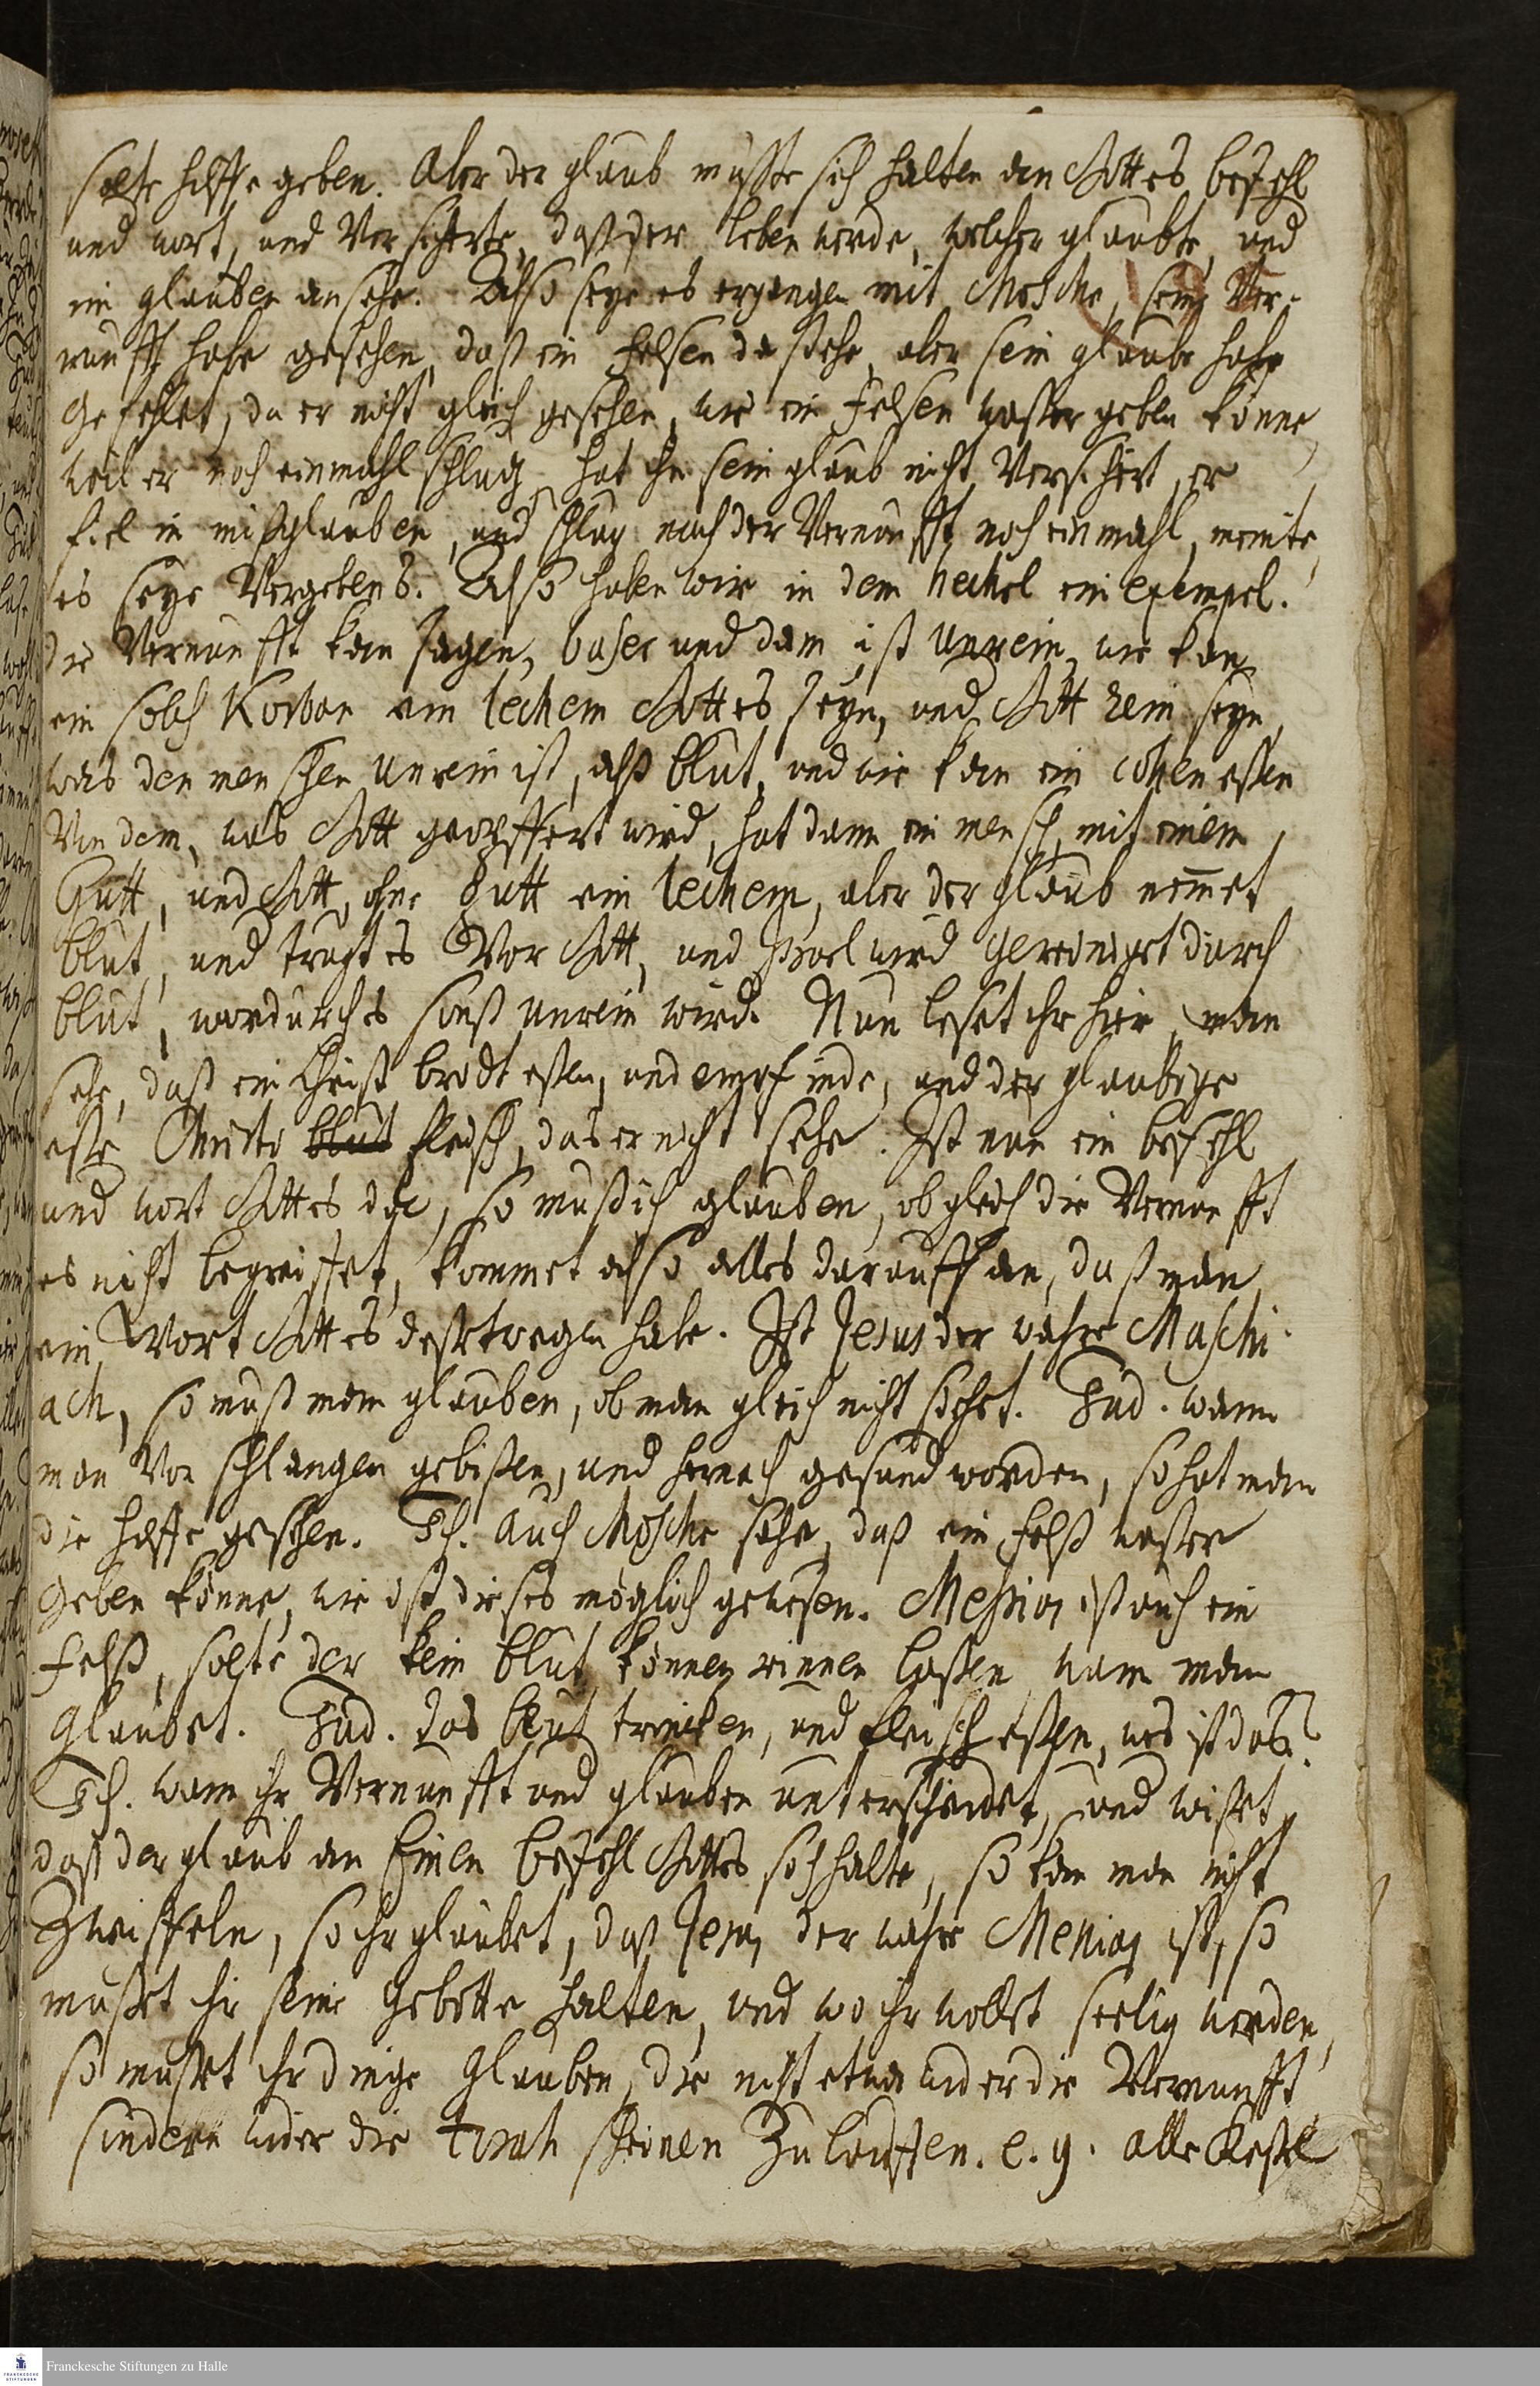 solte hilffe geben. Aber der glaub muste sich halten an Gottes befehl
und wort, und versicherte, daß der leben werde, welcher glaubte, und
im glauben ansehe. Also seye es ergangen mit Mosche, seine Ver-
nunfft habe gesehen, daß ein felsen da stehe, aber sein glaube habe
gefehlet, da er nicht gleich gesehen, wie ein felsen waßer geben könne,
weil er noch einmahl schlug, hat ihn sein glaub nicht versichert, er
fiel in mißglauben, und schlug nach der Vernunfft noch einmahl, meinte
es seye vergebens. Also haben wir in dem hechel ein exempel.
die Vernunfft kan sagen, baser und dam ist unrein, wie kan
ein solch Korban ein lechem Gottes seyn, und Gott rein seyn,
was den menschen unrein ist, alß blut, und wie kan ein cohen eßen
von dem, was Gott geopffert wird, hat dann ein mensch mit einem
Gutt, und Gott, ohne gutt ein lechem, aber der glaub nemmet
blut, und tragt es vor Gott, und Israel wird gereiniget durch
blut, wordurch es sonst unrein wird. Nun leset ihr hier, man
sehe, daß ein Christ brodt eßen, und empfinde, und der glaubige
eße Christi blut fleisch, das er nicht sehe. Ist nun ein befehl
und wort Gottes da, so muß ich glauben, obgleich die Vernunfft
es nicht begreiffet, kommet also alles darauff an, daß man
ein Wort Gottes deßtwegen habe. Ist Jesus der wahre Maschi-
ach, so muß man glauben, ob man gleich nicht siehet. Jud. wann
man von schlangen gebißen, und hernach gesund worden, so hat man
die hilffe gesehen. Ich. Auch Mosche sahe, daß ein felß waßer
geben könne, wie ist dieses möglich gewesen. Messias ist auch ein
felß, solte der kein blut können rinnen laßen, wann man
glaubet. Jud. das blut trincken, und fleisch eßen, was ist das?
Ich. wann ihr Vernunfft und glauben unterscheidet, und wißet,
daß der glaub an Einen befehl Gottes sich halte, so kan man nicht
zweiffeln, so ihr glaubet, daß Jesus der wahre Messias ist, so
mußet ihr seine gebotte halten, und wo ihr wollet seelig werden,
so mußet ihr dinge glauben, die nicht etwa wider die Vernunfft
sindern wider die torah scheinen zu lauffen. e. g. alle
Franckesche Stiftungen zu Halle